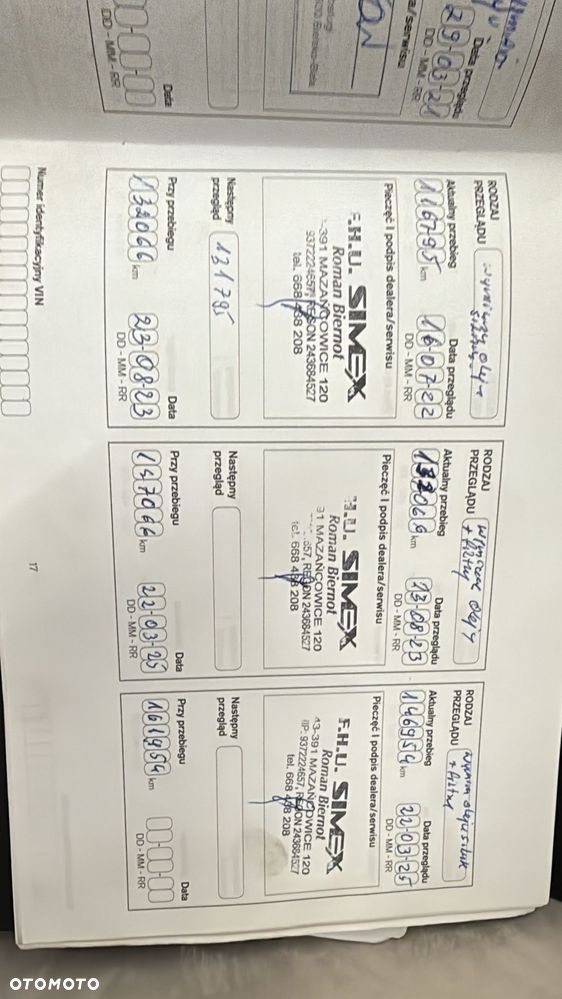 Data przeglądu
29-03-21
DD - MM - RR
a/serwisu
Data
DD - MM - RR
RODZAJ
PRZEGLĄDU
Aktualny przebieg
116795 km
Data przeglądu
16-07-22
DD - MM - RR
Pieczęć i podpis dealera/serwisu
F.H.U. SIMEX
Roman Biernot
-391 MAZAŃCOWICE 120
9372224657, REGON 243684527
tel. 668 438 208
Następny
przegląd
131795
Przy przebiegu
132066 km
Data
23-08-23
DD - MM - RR
RODZAJ
PRZEGLĄDU
+ filtry
Aktualny przebieg
132066 km
Data przeglądu
13-08-23
DD - MM - RR
Pieczęć i podpis dealera/serwisu
H.U. SIMEX
Roman Biernot
91 MAZAŃCOWICE 120
657, REGON 243684527
tel. 668 438 208
Następny
przegląd
Przy przebiegu
147066 km
Data
22-03-25
DD - MM - RR
RODZAJ
PRZEGLĄDU
+ filtry
Aktualny przebieg
146954 km
Data przeglądu
22-03-25
DD - MM - RR
Pieczęć i podpis dealera/serwisu
F.H.U. SIMEX
Roman Biernot
43-391 MAZAŃCOWICE 120
NIP: 9372224657, REGON 243684527
tel. 668 438 208
Następny
przegląd
Przy przebiegu
161954 km
Data
DD - MM - RR
Numer identyfikacyjny VIN
17
OTOMOTO